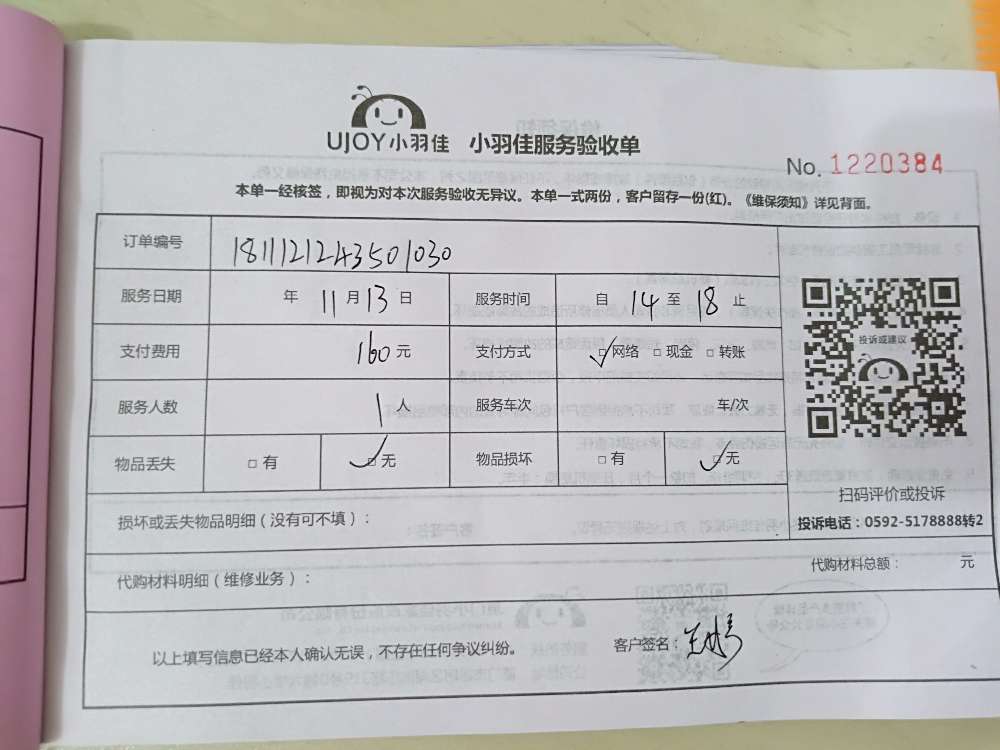 UJOY小羽佳 小羽佳服务验收单
No. 1220384
本单一经核签，即视为对本次服务验收无异议。本单一式两份，客户留存一份(红)。《维保须知》详见背面。
订单编号 1811121243501030
服务日期 年 11 月 13 日 服务时间 自 14 至 18 止
支付费用 160 元 支付方式 ☑网络 □现金 □转账
服务人数 1 人 服务车次 车/次
物品丢失 □有 ☑无 物品损坏 □有 ☑无
投诉或建议
扫码评价或投诉
投诉电话：0592-5178888转2
损坏或丢失物品明细（没有可不填）：
代购材料明细（维修业务）：
代购材料总额： 元
以上填写信息已经本人确认无误，不存在任何争议纠纷。
客户签名：